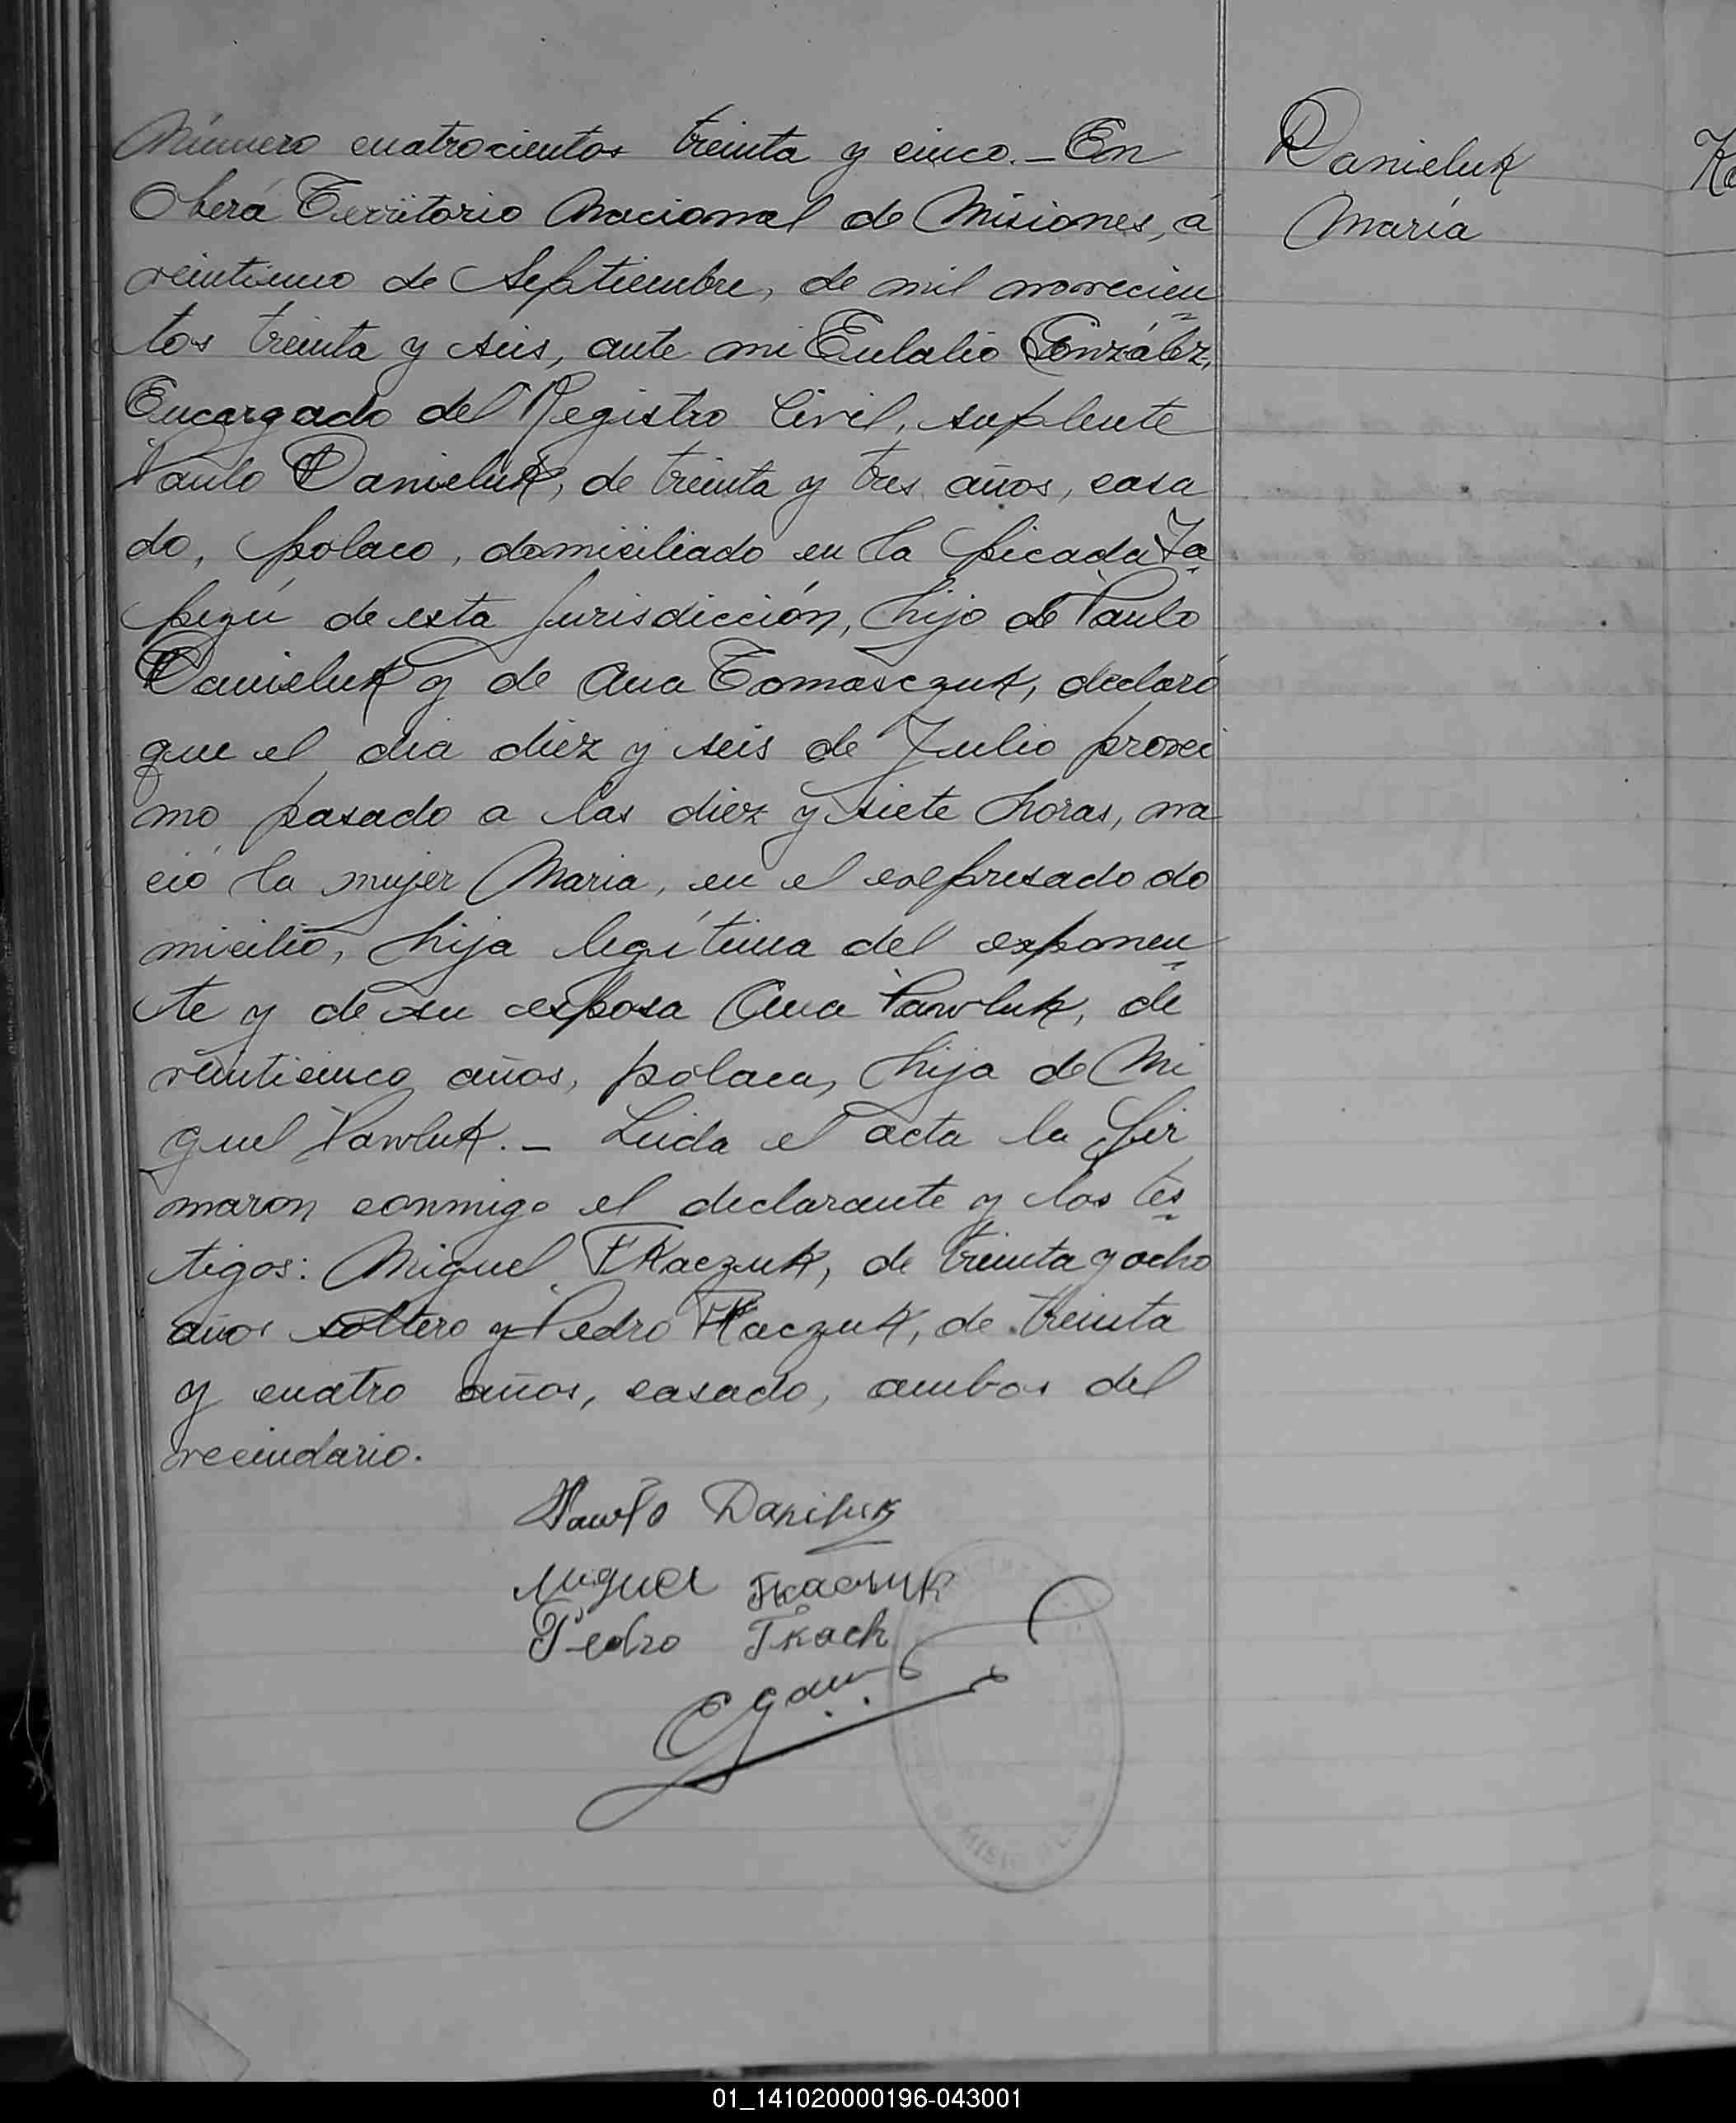 Número cuatrocientos treinta y cinco. – En
Oberá Territorio Nacional de Misiones, á
veintiuno de Septiembre, de mil novecien
tos treinta y seis, ante mi Eulalio González,
Encargado del Registro Civil, suplente
Paulo Danieluk, de treinta y tres años, casa
do, polaco, domiciliado en la picada Ya
peyú de esta Jurisdicción, hijo de Paulo
Danieluk y de Ana Tomasczuk, declaró
que el dia diez y seis de Julio proxi
mo pasado a las diez y siete horas, na
ció la mujer Maria, en el expresado do
micilio, hija legítima del exponen
te y de su esposa Ana Pawluk, de
veinticinco años, polaca, hija de Mi
guel Pawluk. – Leida el acta la fir
maron conmigo el declarante y los tes
tigos: Miguel Tkaczuk, de treinta y ocho
años soltero y Pedro Tkaczuk, de treinta
y cuatro años, casado, ambos del
vecindario.
Pawło Daniluk
Miguel Tkaczuk
Pedro Tkach
Danieluk
María
01_141020000196-043001